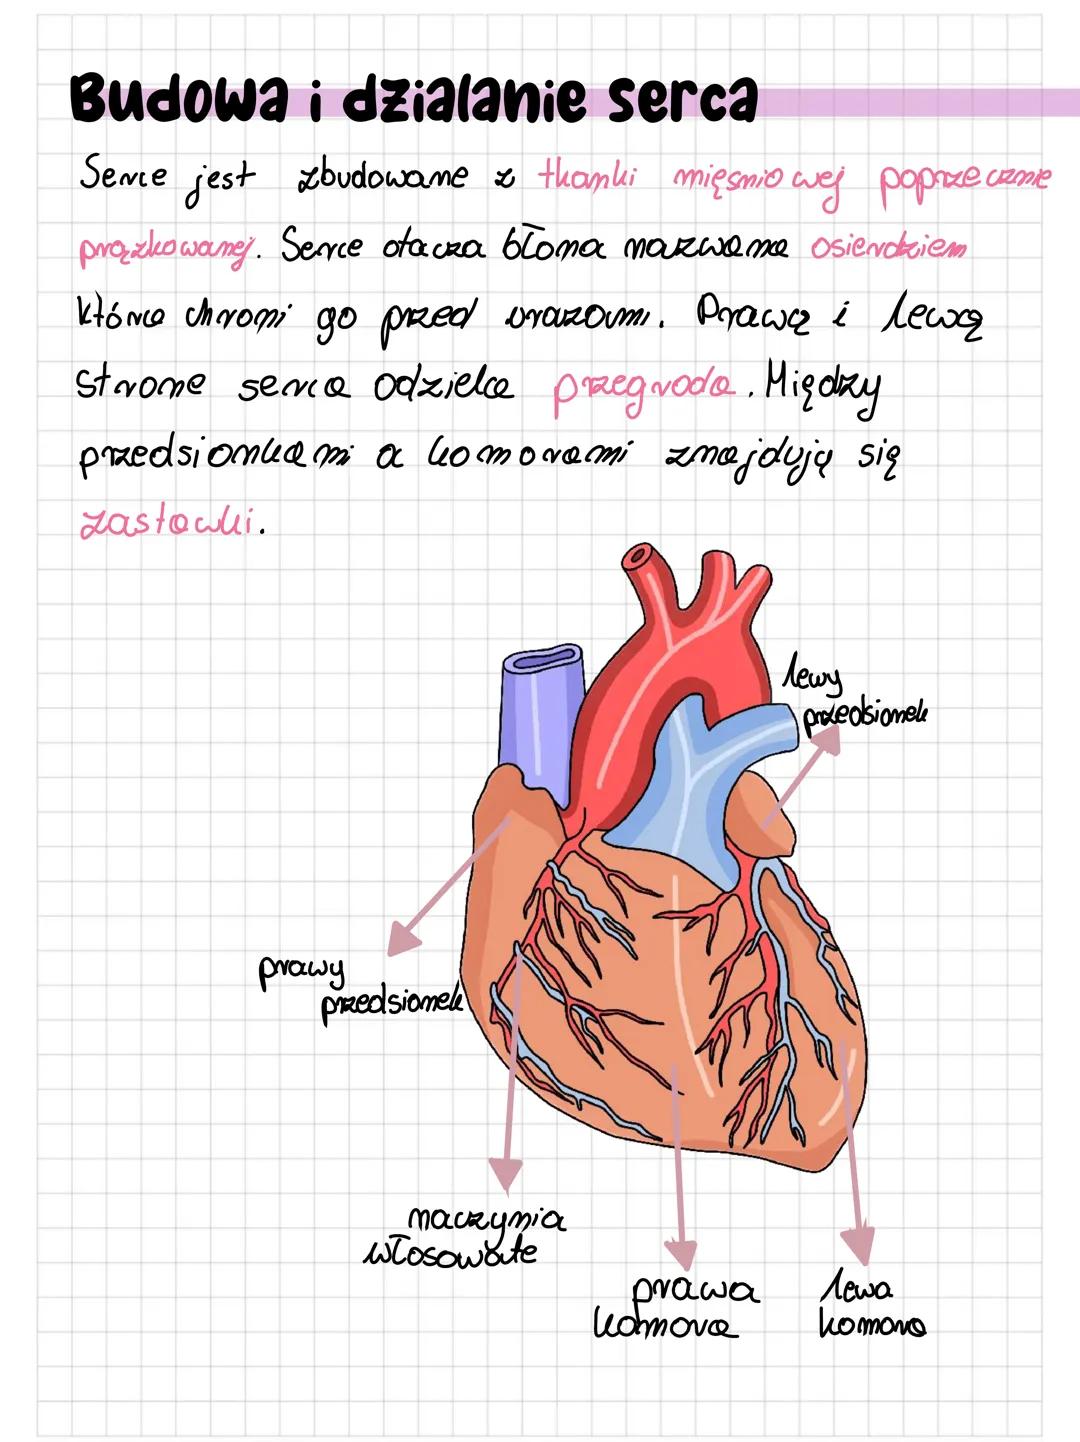 Budowa i dzialanie serca
Serce jest zbudowane z tkanki mięśniowej poprzecznie
prążkowanej. Serce otacza błona nazwana osierdziem
która chroni go przed urazami. Prawą i lewą
strone serca odziela przegroda. Między
przedsionkami a komorami znajdują się
zastawki.
lewy
przedsionek
prawy
przedsionek
naczynia
włosowate
prawa
komora
lewa
komora